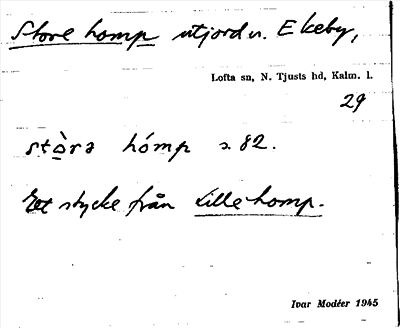 Store homp utjord u. Ekeby,
Lofta sn, N. Tjusts hd, Kalm. l.
29
stò̲rə hómp s. 82.
Ett stycke från Lille homp.
Ivar Modéer 1945